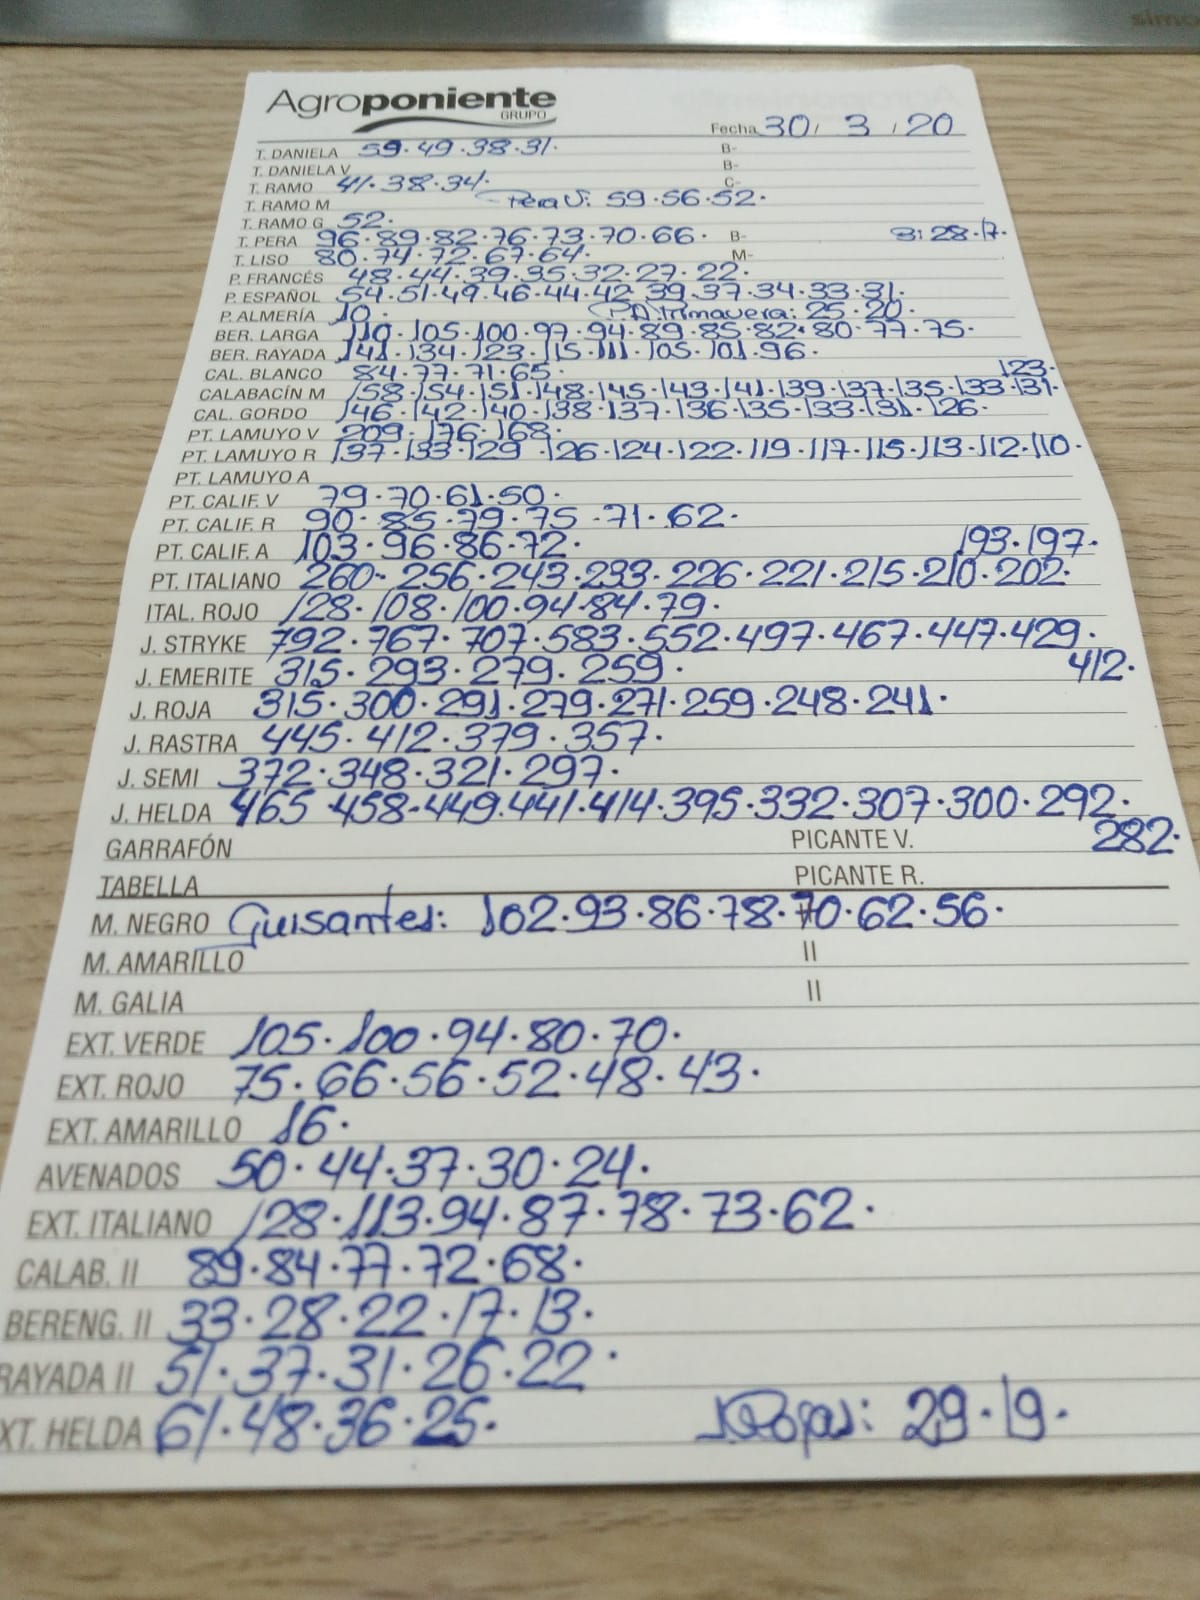 Agroponiente
GRUPO
Fecha 30 / 3 / 20
T. DANIELA 59·49·38·31· B-
T. DANIELA V B-
T. RAMO 41·38·34· C-
T. RAMO M Pera V: 59·56·52·
T. RAMO G 52·
T. PERA 96·89·82·76·73·70·66· B- 3: 28·17·
T. LISO 80·74·72·67·64· M-
P. FRANCÉS 48·44·39·35·32·27·22·
P. ESPAÑOL 54·51·49·46·44·42·39·37·34·33·31·
P. ALMERÍA 10· PD Primavera: 25·20·
BER. LARGA 110·105·100·97·94·89·85·82·80·77·75·
BER. RAYADA 141·134·123·115·111·105·101·96·
CAL. BLANCO 84·77·71·65· 123·
CALABACÍN M 158·154·151·148·145·143·141·139·137·135·133·131·
CAL. GORDO 146·142·140·138·137·136·135·133·131·126·
PT. LAMUYO V 209·176·168·
PT. LAMUYO R 137·133·129·126·124·122·119·117·115·113·112·110·
PT. LAMUYO A
PT. CALIF. V 79·70·61·50·
PT. CALIF. R 90·85·79·75·71·62·
PT. CALIF. A 103·96·86·72· 193·197·
PT. ITALIANO 260·256·243·233·226·221·215·210·202·
ITAL. ROJO 128·108·100·94·84·79·
J. STRYKE 792·767·707·583·552·497·467·447·429·
J. EMERITE 315·293·279·259· 412·
J. ROJA 315·300·291·279·271·259·248·241·
J. RASTRA 445·412·379·357·
J. SEMI 372·348·321·297·
J. HELDA 465·458·449·441·414·395·332·307·300·292·
GARRAFÓN PICANTE V. 282·
TABELLA PICANTE R.
M. NEGRO Guisantes: 102·93·86·78·70·62·56·
M. AMARILLO II
M. GALIA II
EXT. VERDE 105·100·94·80·70·
EXT. ROJO 75·66·56·52·48·43·
EXT. AMARILLO 16·
AVENADOS 50·44·37·30·24·
EXT. ITALIANO 128·113·94·87·78·73·62·
CALAB. II 89·84·77·72·68·
BERENG. II 33·28·22·17·13·
RAYADA II 51·37·31·26·22·
XT. HELDA 61·48·36·25· 29·19·